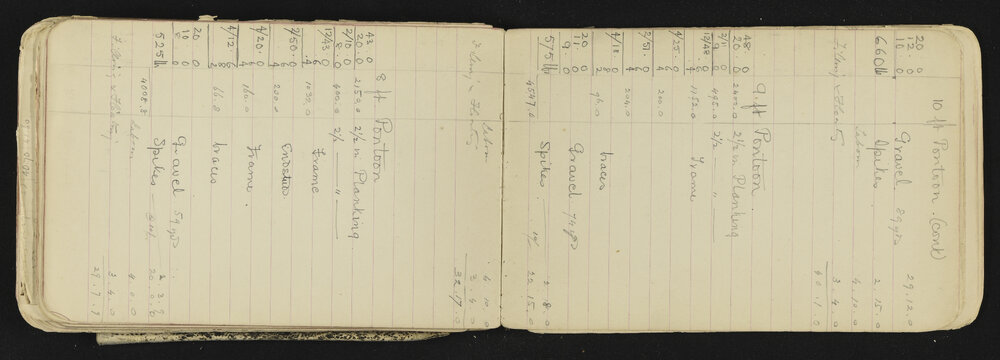 10 ft Pontoon. (cont)
20 . 0
12 . 0
10 . 0
Gravel 89 yds 29.12.0
660 lb Spikes 2.15.0
Labour 4.10.0
Filling & Floating 3.4.0
40.1.0
9 ft Pontoon.
48.0
20.0 2400.0 2½ in Planking
2/11.0
9.0 495.0 2½ — " —
12/48.0 1152.0 Frame
4/25.0 200.0
2/51.0 204.0
4/18 96.0 braces
20 . 0
11 . 0
9 . 0
Gravel 74 yds 2.8.0
575 lb 4547.0 Spikes 22.15.0
Labour 4.10.0
Filling & Floating 3.4.0
32.17.0
8 ft Pontoon
43.0
20.0 2150.0 2½ in Planking
2/10.0
8.0 400.0 2½ — " —
12/43 1032.0 Frame
2/50.0 200.0
4/20.0 160.0 Frame
4/12 braces
20 . 0
10 . 0
8 . 0
Gravel 59 yds
525 lb 4008.8 Spikes
Labour 4.0.0
Filling & Floating 3.4.0
29.7.9